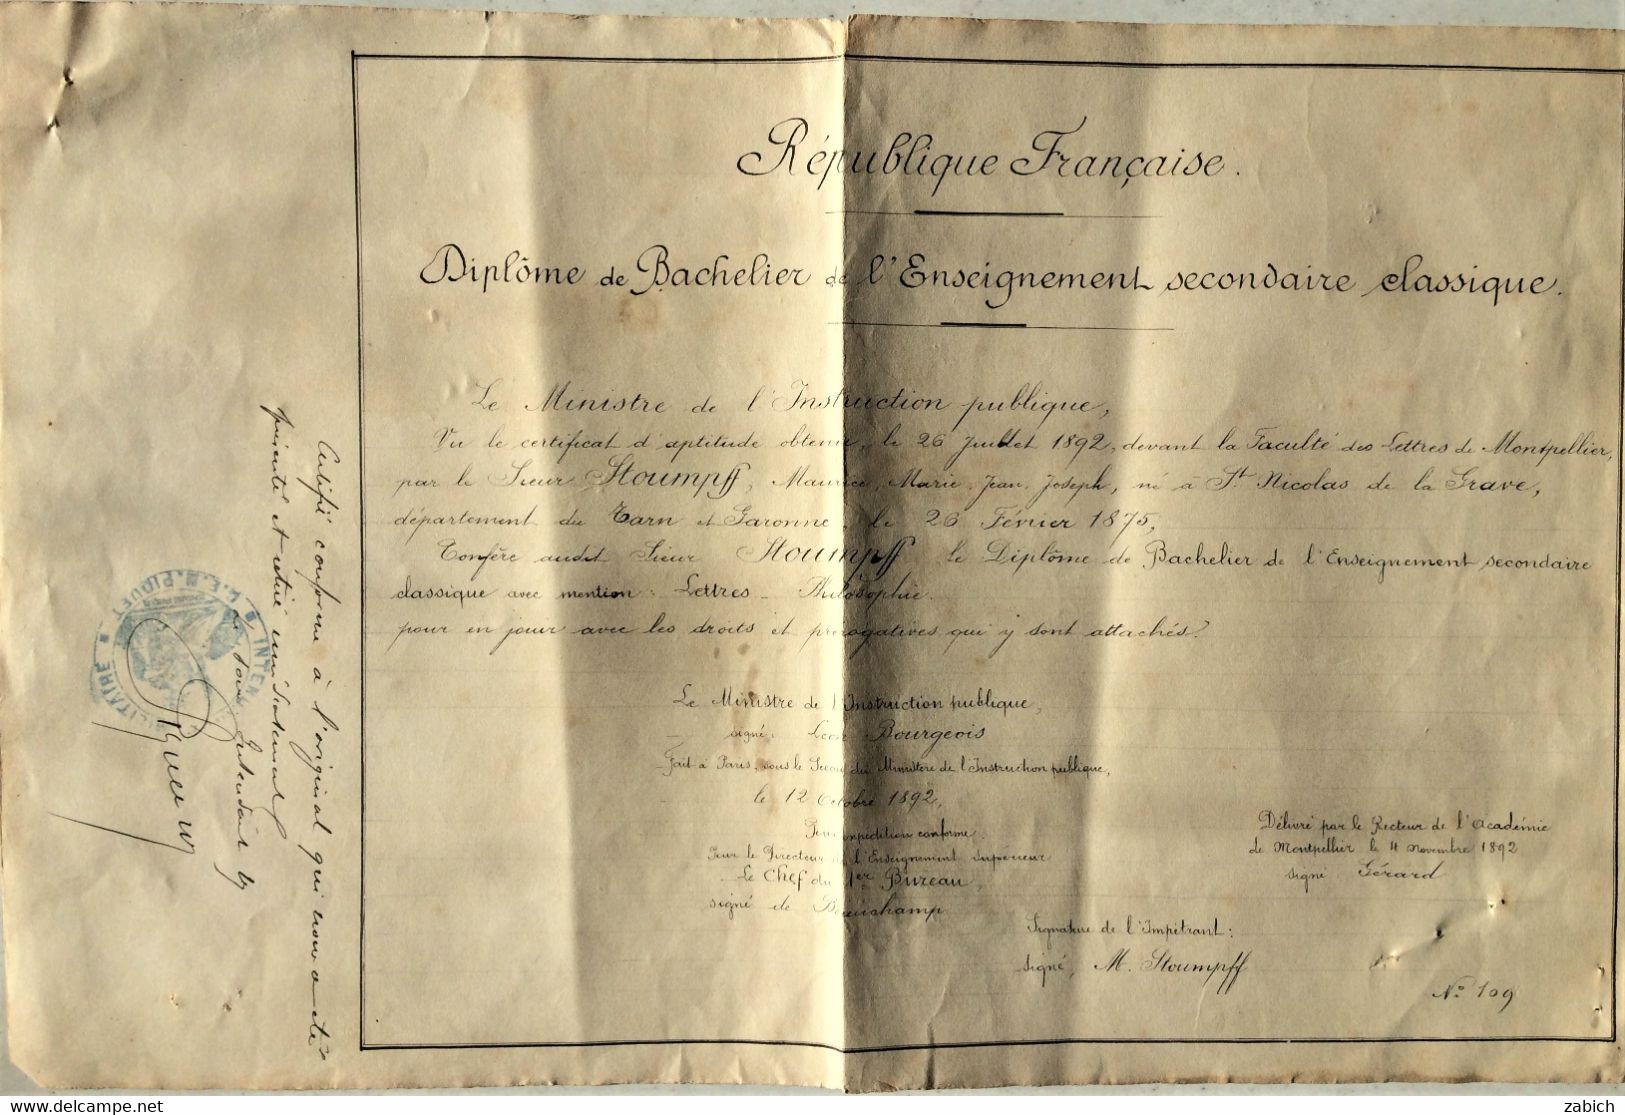 République Française.
Diplôme de Bachelier de l'Enseignement secondaire classique.
Le Ministre de l'Instruction publique,
Vu le certificat d'aptitude obtenu, le 26 Juillet 1892, devant la Faculté des Lettres de Montpellier,
par le Sieur Stoumpff, Maurice, Marie, Jean, Joseph, né à St. Nicolas de la Grave,
département du Tarn et Garonne, le 26 Février 1875,
Confère audit Sieur Stoumpff le Diplôme de Bachelier de l'Enseignement secondaire
classique avec mention: Lettres - Philosophie.
pour en jouir avec les droits et prérogatives qui y sont attachés.
Le Ministre de l'Instruction publique,
signé: Léon Bourgeois
Fait à Paris, sous le Sceau du Ministère de l'Instruction publique,
le 12 Octobre 1892,
Pour expédition conforme.
Pour le Directeur de l'Enseignement Supérieur
Le Chef du 1er Bureau,
signé de Beauchamp
Délivré par le Recteur de l'Académie
de Montpellier le 4 novembre 1892
signé Gérard
Signature de l'Impétrant:
signé, M. Stoumpff
No. 109
Certifié conforme à l'original qui nous a été
présenté et retiré immédiatement
Le Sous Intendant
INTEN MILITAIRE
zabich